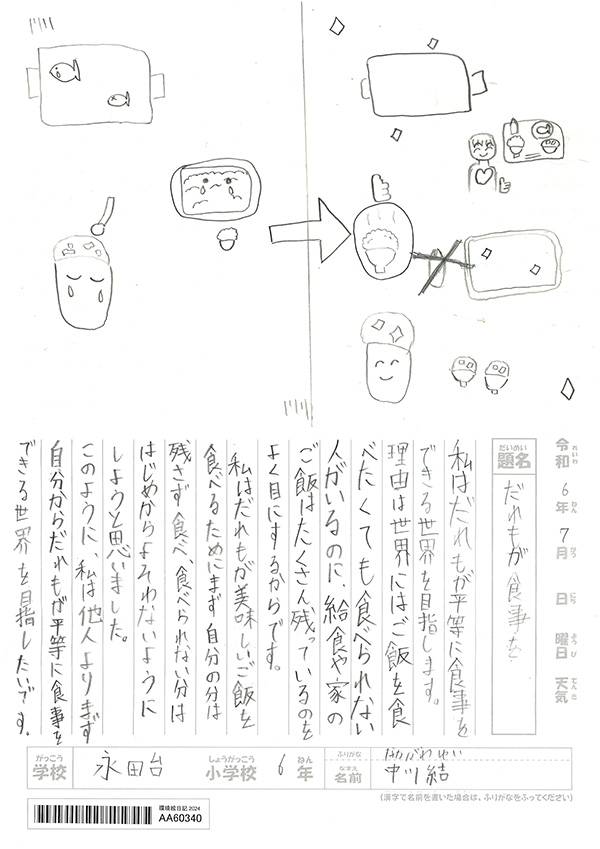 令和6年7月 日 曜日 天気
れいわ ねん がつ にち ようび てんき
だいめい
題名
だれもが食事を
私はだれもが平等に食事を
できる世界を目指します。
理由は世界にはご飯を食
べたくても食べられない
人がいるのに、給食や家の
ご飯はたくさん残っているのを
よく目にするからです。
私はだれもが美味しいご飯を
食べるためにまず自分の分は
残さず食べ、食べられない分は
はじめからよそわないように
しようと思いました。
このように、私は他人よりまず
自分からだれもが平等に食事を
できる世界を目指したいです。
がっこう しょうがっこう ねん
学校 永田台 小学校 6年
ふりがな なかがわ ゆい
なまえ
名前 中川 結
(漢字で名前を書いた場合は、ふりがなをふってください)
環境絵日記 2024
AA60340